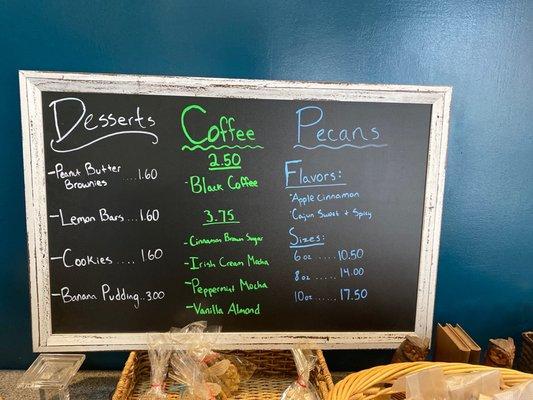 Desserts
-Peanut Butter
Brownies ....1.60
-Lemon Bars ...1.60
-Cookies .... 1.60
-Banana Pudding ..3.00
Coffee
2.50
-Black Coffee
3.75
-Cinnamon Brown Sugar
-Irish Cream Mocha
-Peppermint Mocha
-Vanilla Almond
Pecans
Flavors:
·Apple Cinnamon
·Cajun Sweet + Spicy
Sizes:
6oz ..... 10.50
8oz ..... 14.00
10oz ..... 17.50